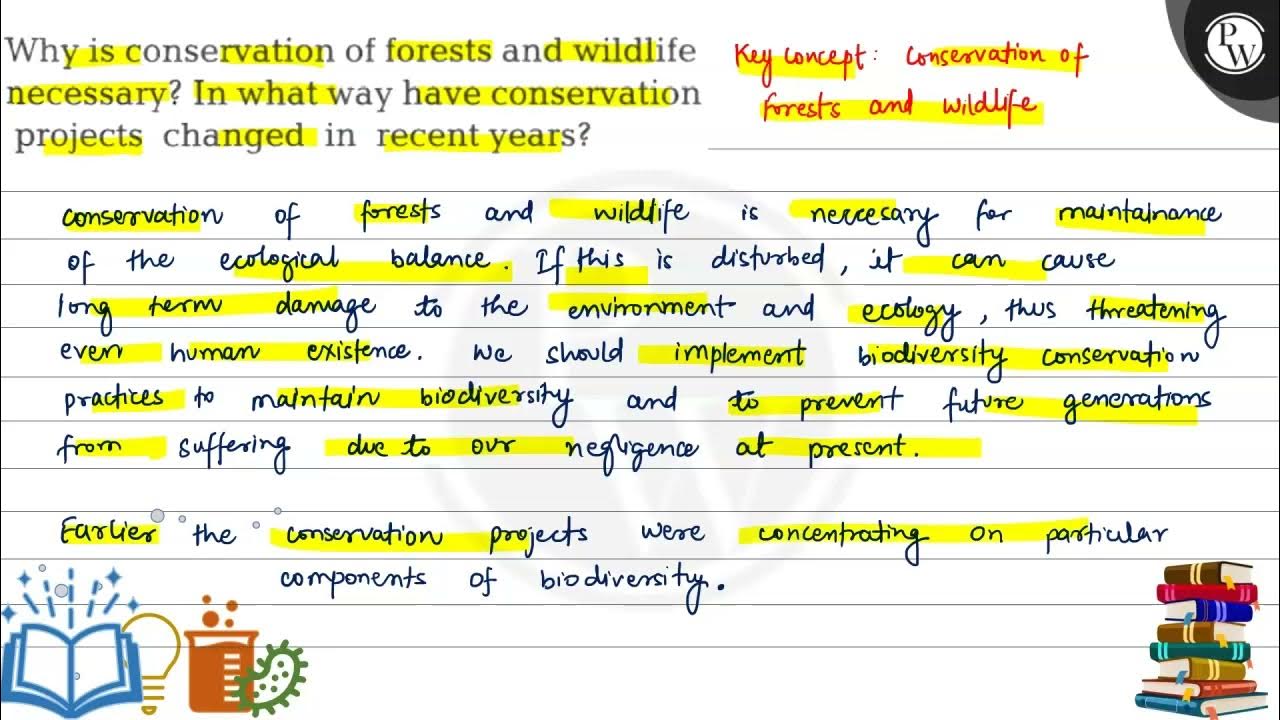 Why is conservation of forests and wildlife
necessary? In what way have conservation
projects changed in recent years?
Key concept: Conservation of
forests and wildlife
PW
conservation of forests and wildlife is neccesary for maintainance
of the ecological balance. If this is disturbed, it can cause
long term damage to the environment and ecology, thus threatening
even human existence. We should implement biodiversity conservation
practices to maintain biodiversity and to prevent future generations
from suffering due to our negligence at present.
Earlier the conservation projects were concentrating on particular
components of biodiversity.